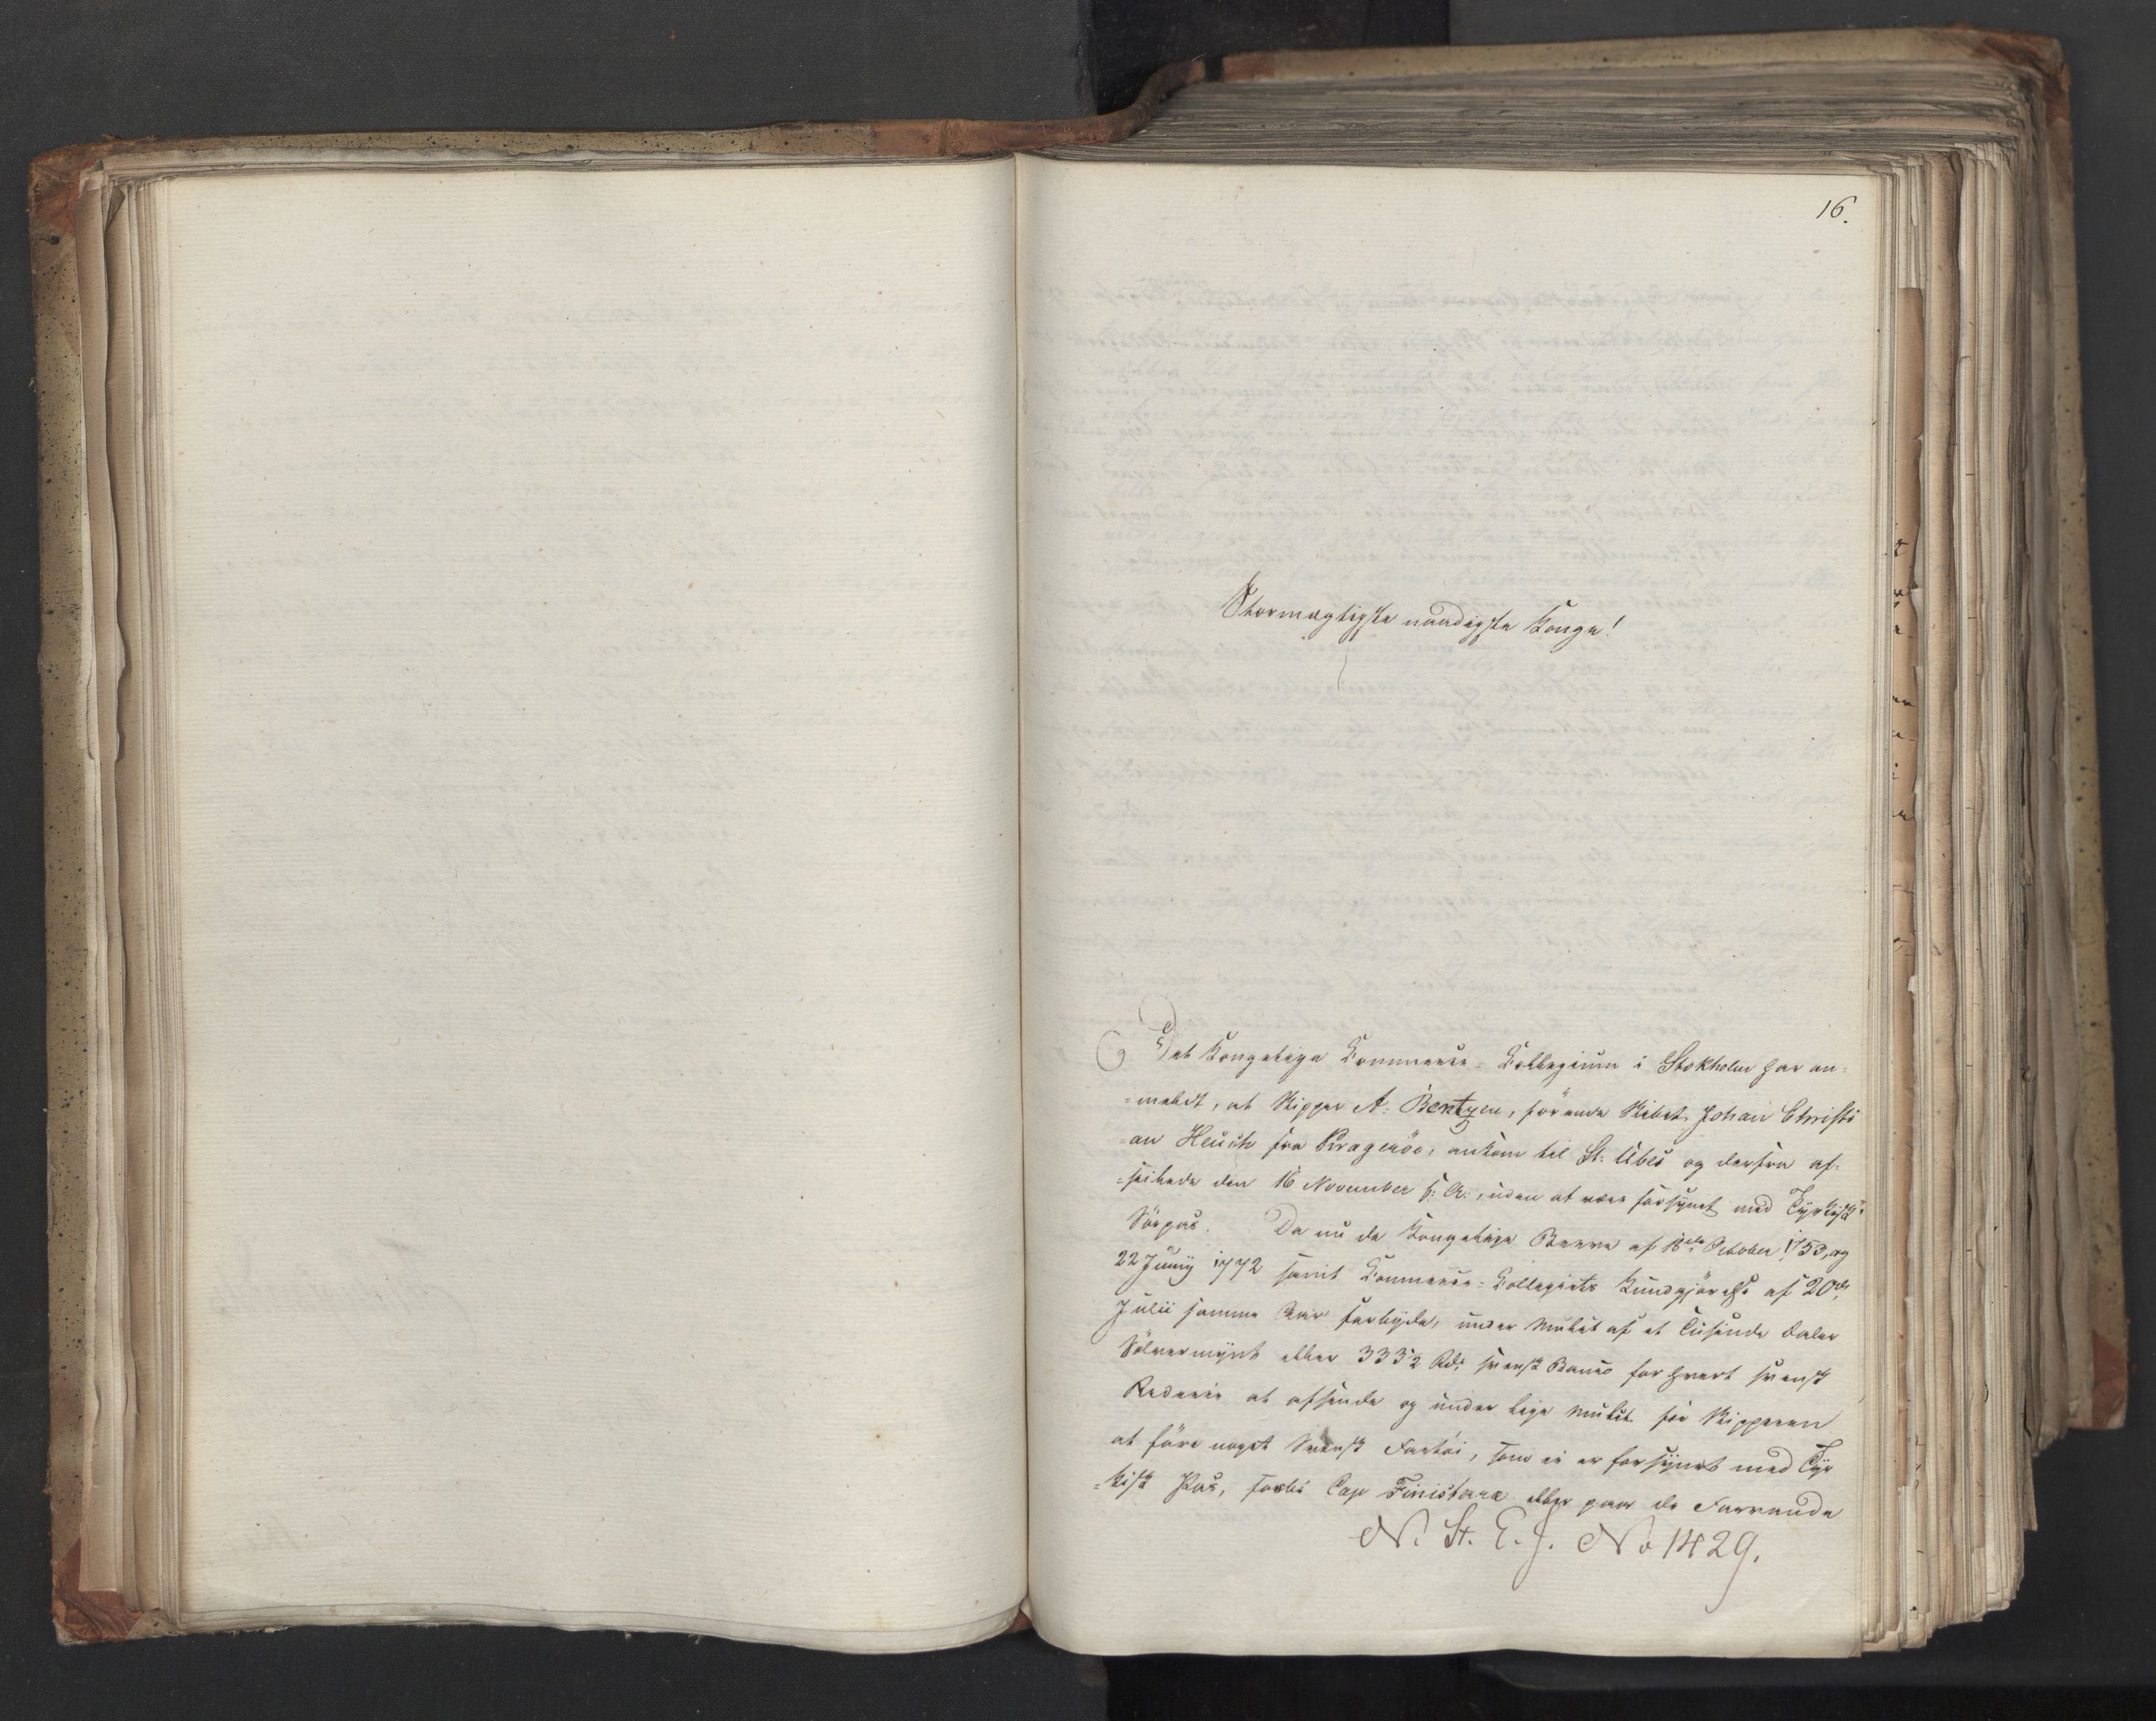 16.
Stormægtigste naadigste Konge!
Det Kongelige Commerce-Collegium i Stokholm har an=
=meldt, at Skipper A: Bentzen, förende Skibet Johan Christi
=an Heuch fra Krageröe, ankom til St: Übes og derfra af=
=seilede den 16 November f: A:, uden at være forsynet med Tyrkisk
Söepas. Da nu de Kongelige Breve af 18de October 1753, og
22 Junij 1772 samt Commerce-Collegiets Kundgjörelse af 20de
Julii samme Aar forbyde, under Mulkt af et Tusinde Daler
Sölvermynt eller 333½ Rdr svensk Banco for hvert svensk
Rederie at afsende og under lige Mulkt for Skipperen
at före noget Svensk Fartöi, som ei er forsynet med Tyr
=kisk Pas, forbi Cap Finisterra eller paa de Farvande
N. St. E. J. No 1429.